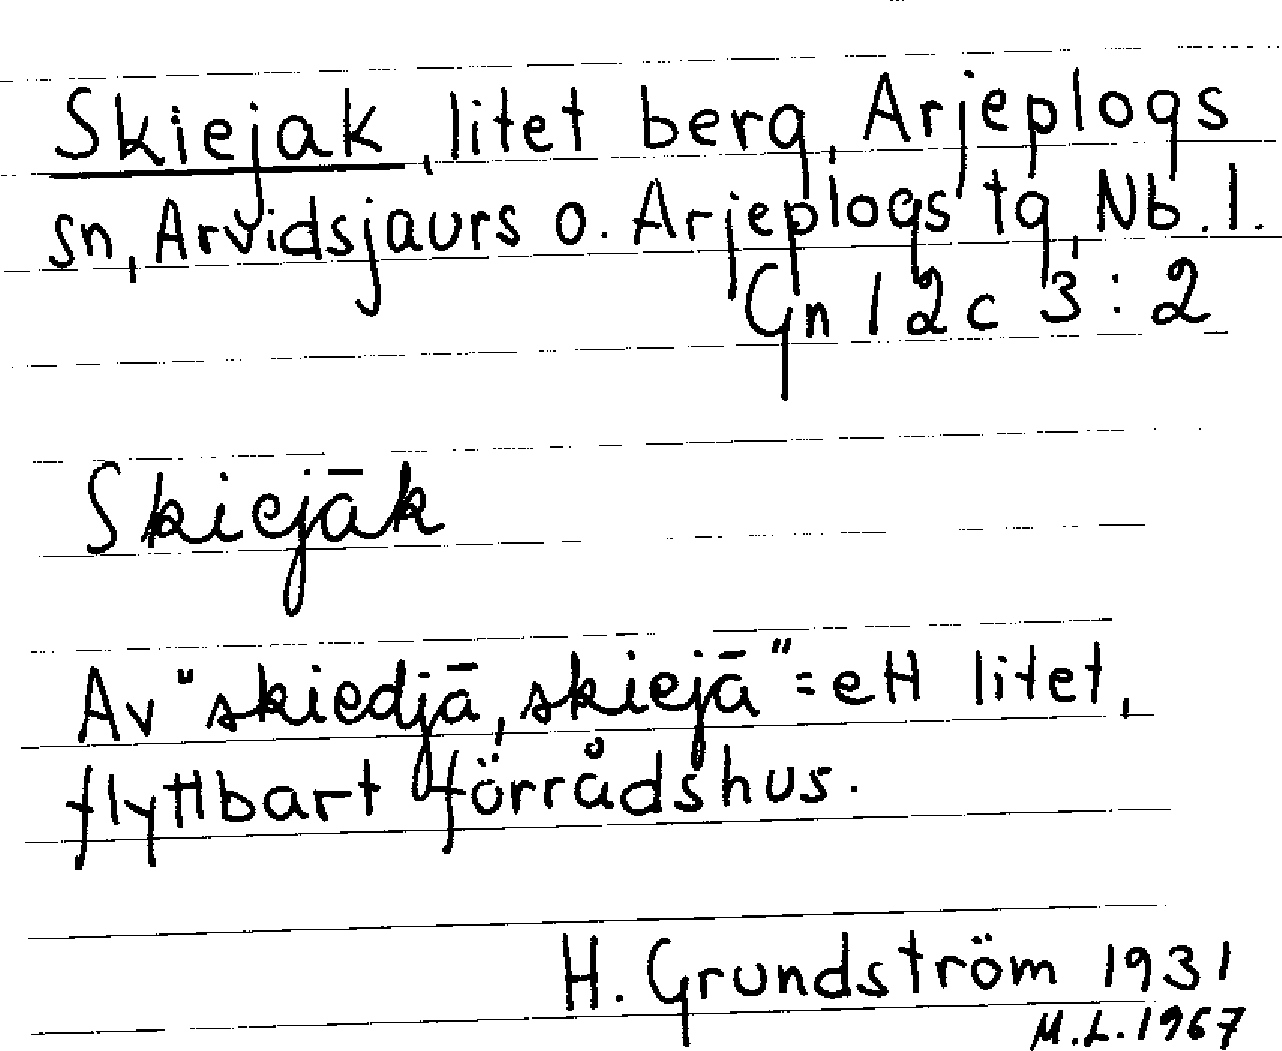 Skiejak, litet berg, Arjeplogs
sn, Arvidsjaurs o. Arjeplogs tg, Nb. l.
Gn 12c 3:2
Skiejāk
Av "skiedjā, skiejā" = ett litet,
flyttbart förrådshus.
H. Grundström 1931
M.L. 1967